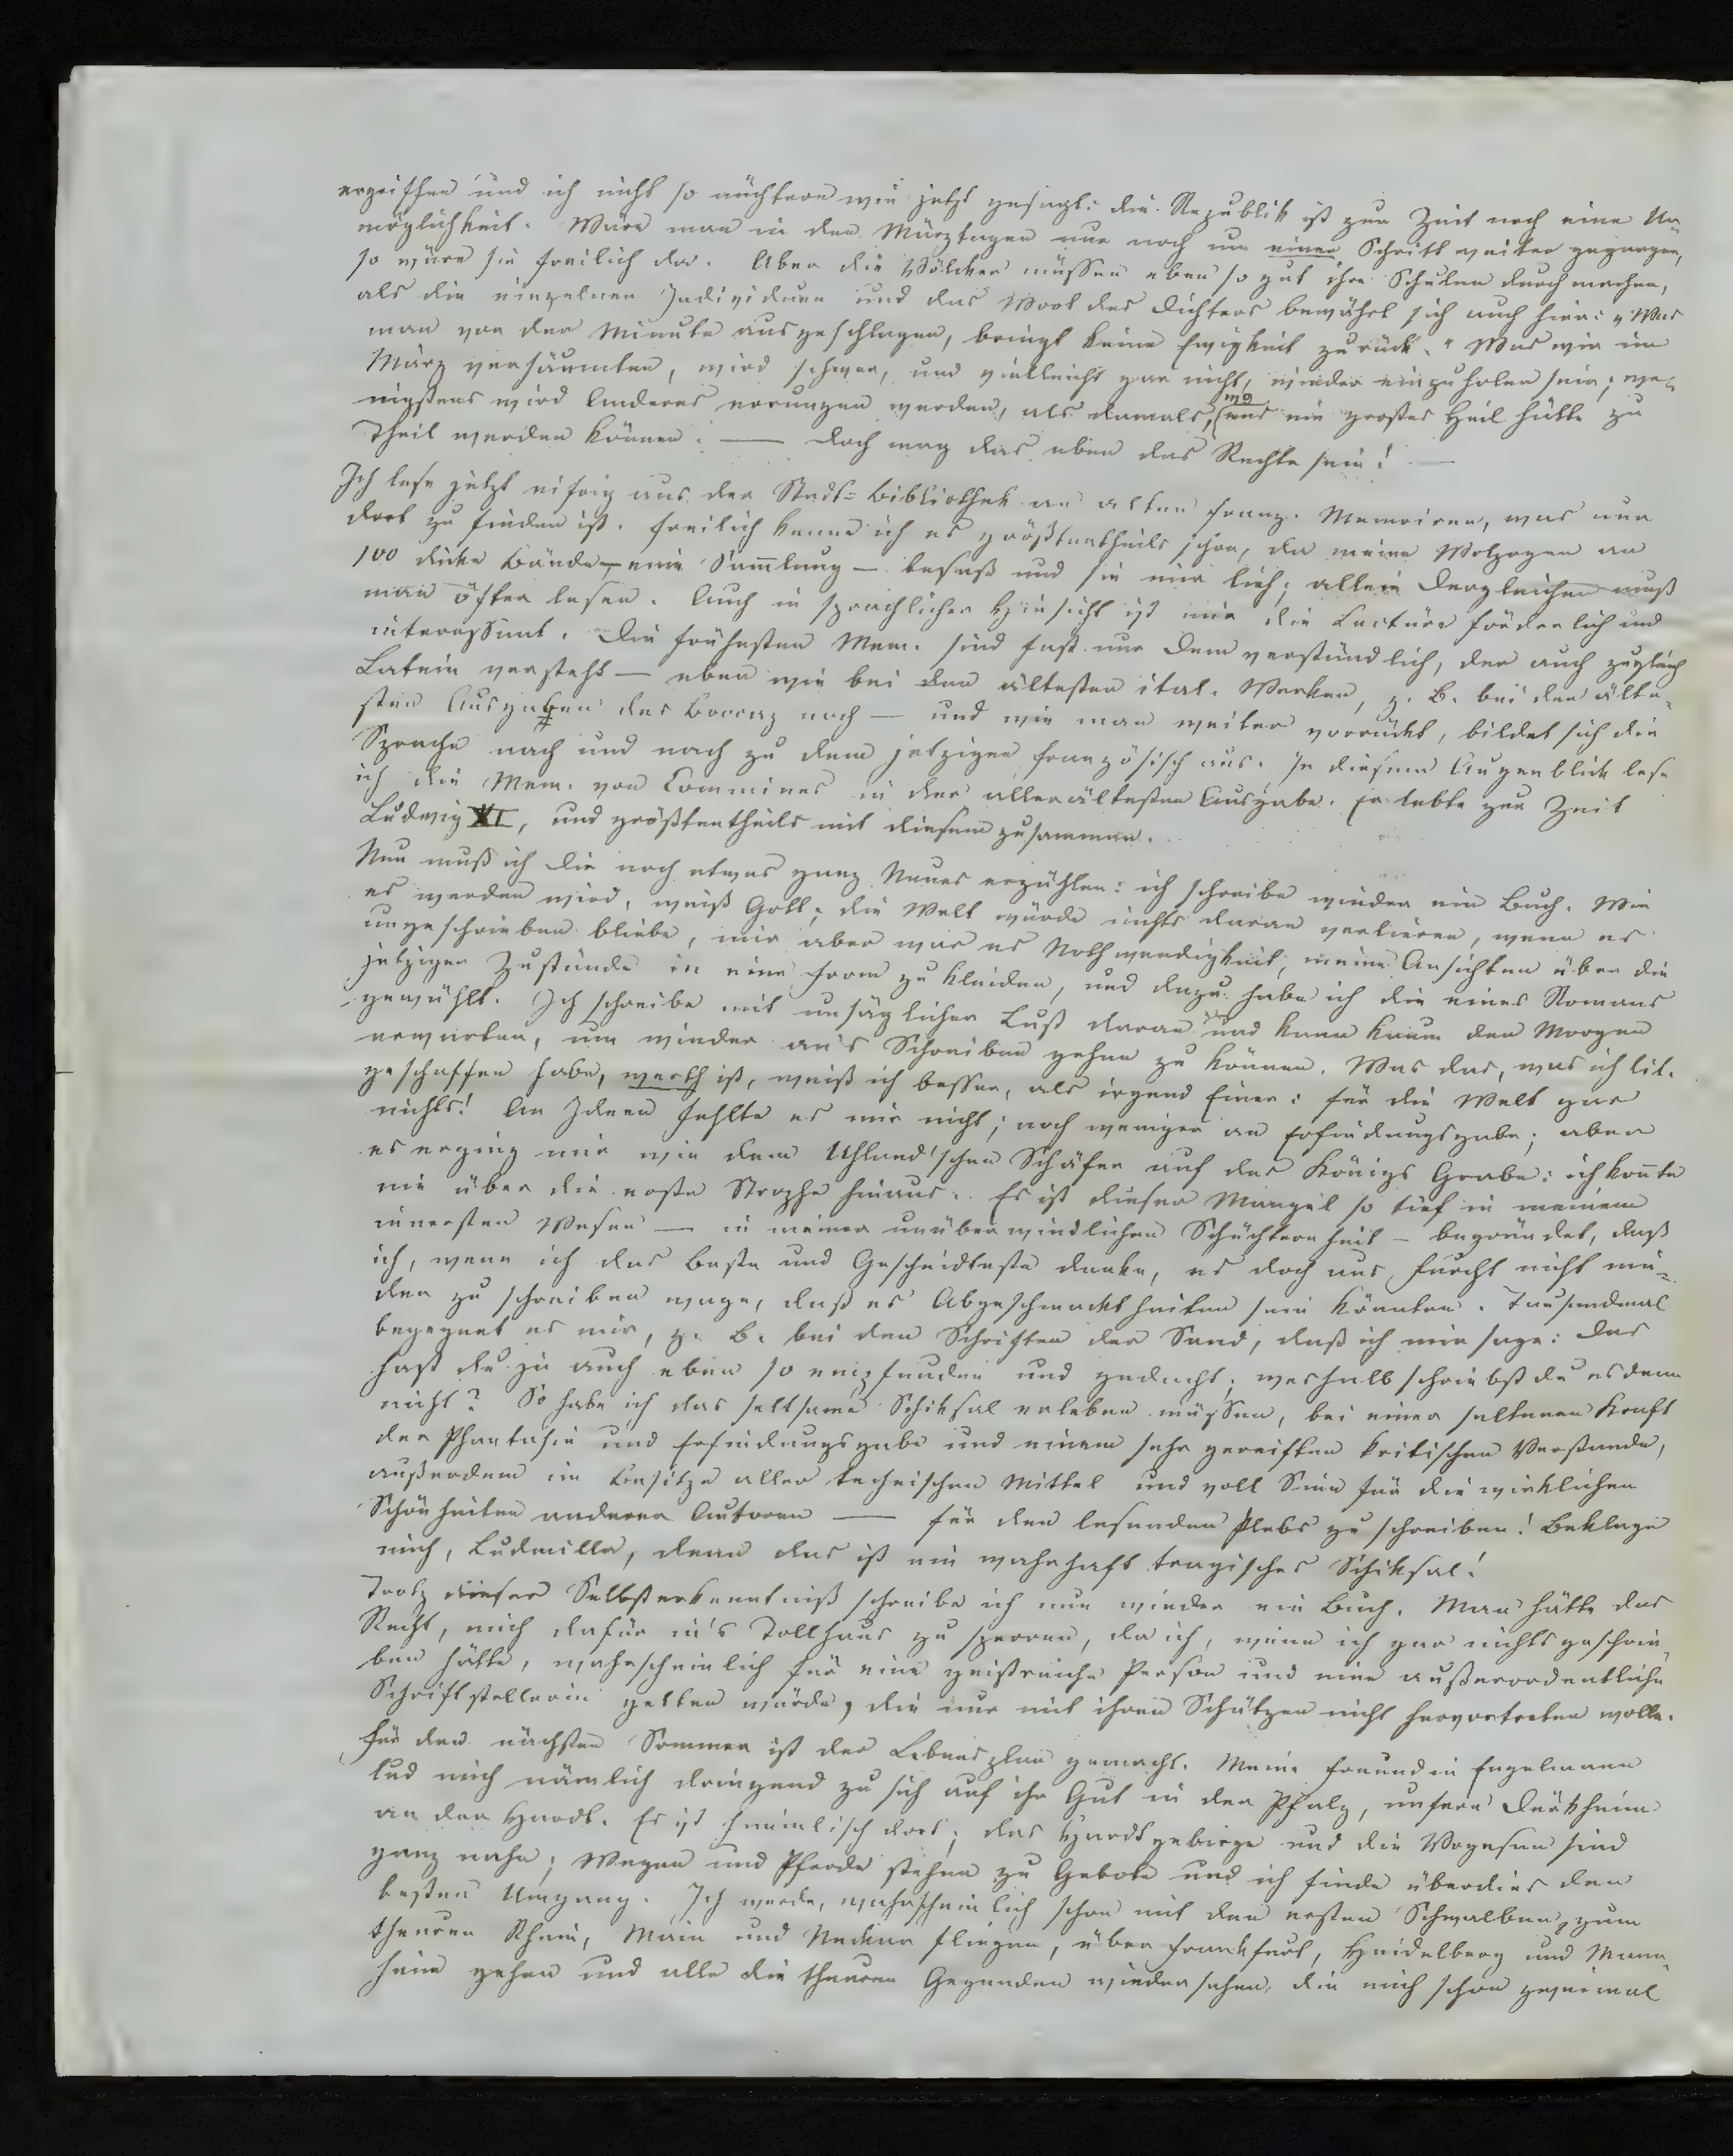 ergriffen und ich nicht so nüchtern wie jetzt gesagt: die Republik ist zur Zeit noch eine Un=
möglichkeit. Wäre man in den Märztagen nur noch um einen Schritt weiter gegangen,
so wäre sie freilich da. Aber die Völcker müssen eben so gut ihre Schulen durchmachen,
als die einzelnen Individuen und das Wort des Dichters bewährt sich auch hier: „Was
man von der Minute ausgeschlagen, bringt keine Ewigkeit zurück." Was wir im
März versäumten, wird schwer, und vielleicht gar nicht, wieder einzuholen sein; we=
nigstens wird Anderes errungen werden, als damals, wo uns ein großes Heil hätte zu
Theil werden können. — Doch mag das eben das Rechte sein! —
Ich lese jetzt eifrig aus der Stadt=Bibliothek an alten franz. Memoiren, was nur
dort zu finden ist. Freilich kenne ich es größtentheils schon, da meine Wolzogen an
100 dicke Bände — eine Sammlung — besaß und sie mir lieh; allein dergleichen muß
man öfter lesen. Auch in sprachlicher Hinsicht ist mir die Lectüre förderlich und
interessant. Die frühesten Mem. sind fast nur dem verständlich, der auch zugleich
Latein versteht — eben wie bei den ältesten ital. Werken, z. B. bei den älte=
sten Ausgaben des Bocaz noch — und wie man weiter vorrückt, bildet sich die
Sprache nach und nach zu dem jetzigen französisch aus. In diesem Augenblick lese
ich die Mem. von Commines in der allerältesten Ausgabe. Er lebte zur Zeit
Ludwig XI, und größtentheils mit diesem zusammen.
Nun muß ich Dir noch etwas ganz Neues erzählen: ich schreibe wieder ein Buch. Wie
es werden wird, weiß Gott; die Welt würde nichts daran verlieren, wenn es
ungeschrieben bliebe, mir aber war es Nothwendigkeit, meine Ansichten über die
jetzigen Zustände in eine Form zu kleiden, und dazu habe ich die eines Romans
gewählt. Ich schreibe mit unsäglicher Lust daran und kann kaum den Morgen
erwarten, um wieder an's Schreiben gehen zu können. Was das, was ich lit.
geschaffen habe, werth ist, weiß ich besser, als irgend Einer: für die Welt gar
nichts! An Ideen fehlte es mir nicht; noch weniger an Erfindungsgabe; aber
es erging mir wie dem Uhland'schen Schäfer auf des Königs Grabe: ich konnte
nie über die erste Strophe hinaus. Es ist dieser Mangel so tief in meinem
innersten Wesen — in meiner unüberwindlichen Schüchternheit — begründet, daß
ich, wenn ich das Beste und Gescheidteste denke, es doch aus Furcht nicht nie=
der zu schreiben wage, daß es Abgeschmacktheiten sein könnten. Tausendmal
begegnet es mir, z. B. bei den Schriften der Sand, daß ich mir sage: das
hast du ja auch eben so empfunden und gedacht; weshalb schriebst du es denn
nicht? So habe ich das seltsame Schiksal erleben müssen, bei einer seltenen Kraft
der Phantasie und Erfindungsgabe und einem sehr gereiften kritischen Verstande,
außerdem im Besitze aller technischen Mittel und voll Sinn für die wirklichen
Schönheiten anderer Autoren — für den lesenden Plebs zu schreiben! Beklage
mich, Ludmilla, denn das ist ein wahrhaft tragisches Schiksal!
Trotz dieser Selbsterkenntniß schreibe ich nun wieder ein Buch. Man hätte das
Recht, mich dafür in's Tollhaus zu sperren, da ich, wenn ich gar nichts geschrie=
ben hätte, wahrscheinlich für eine geistreiche Person und eine außerordentliche
Schriftstellerin gelten würde, die nur mit ihren Schätzen nicht hervortreten wolle.
Für den nächsten Sommer ist der Lebensplan gemacht. Meine Freundin Engelmann
lud mich nämlich dringend zu sich auf ihr Gut in der Pfalz, unfern Dürkheim
an der Hardt. Es ist himmlisch dort; das Hardtgebirge und die Vogesen sind
ganz nahe; Wagen und Pferde stehen zu Gebote und ich finde überdies den
besten Umgang. Ich werde, wahrscheinlich schon mit den ersten Schwalben, zum
theuren Rhein, Main und Neckar fliegen, über Frankfurt, Heidelberg und Mann=
heim gehen und alle die theuren Gegenden wiedersehen, die mich schon zweimal